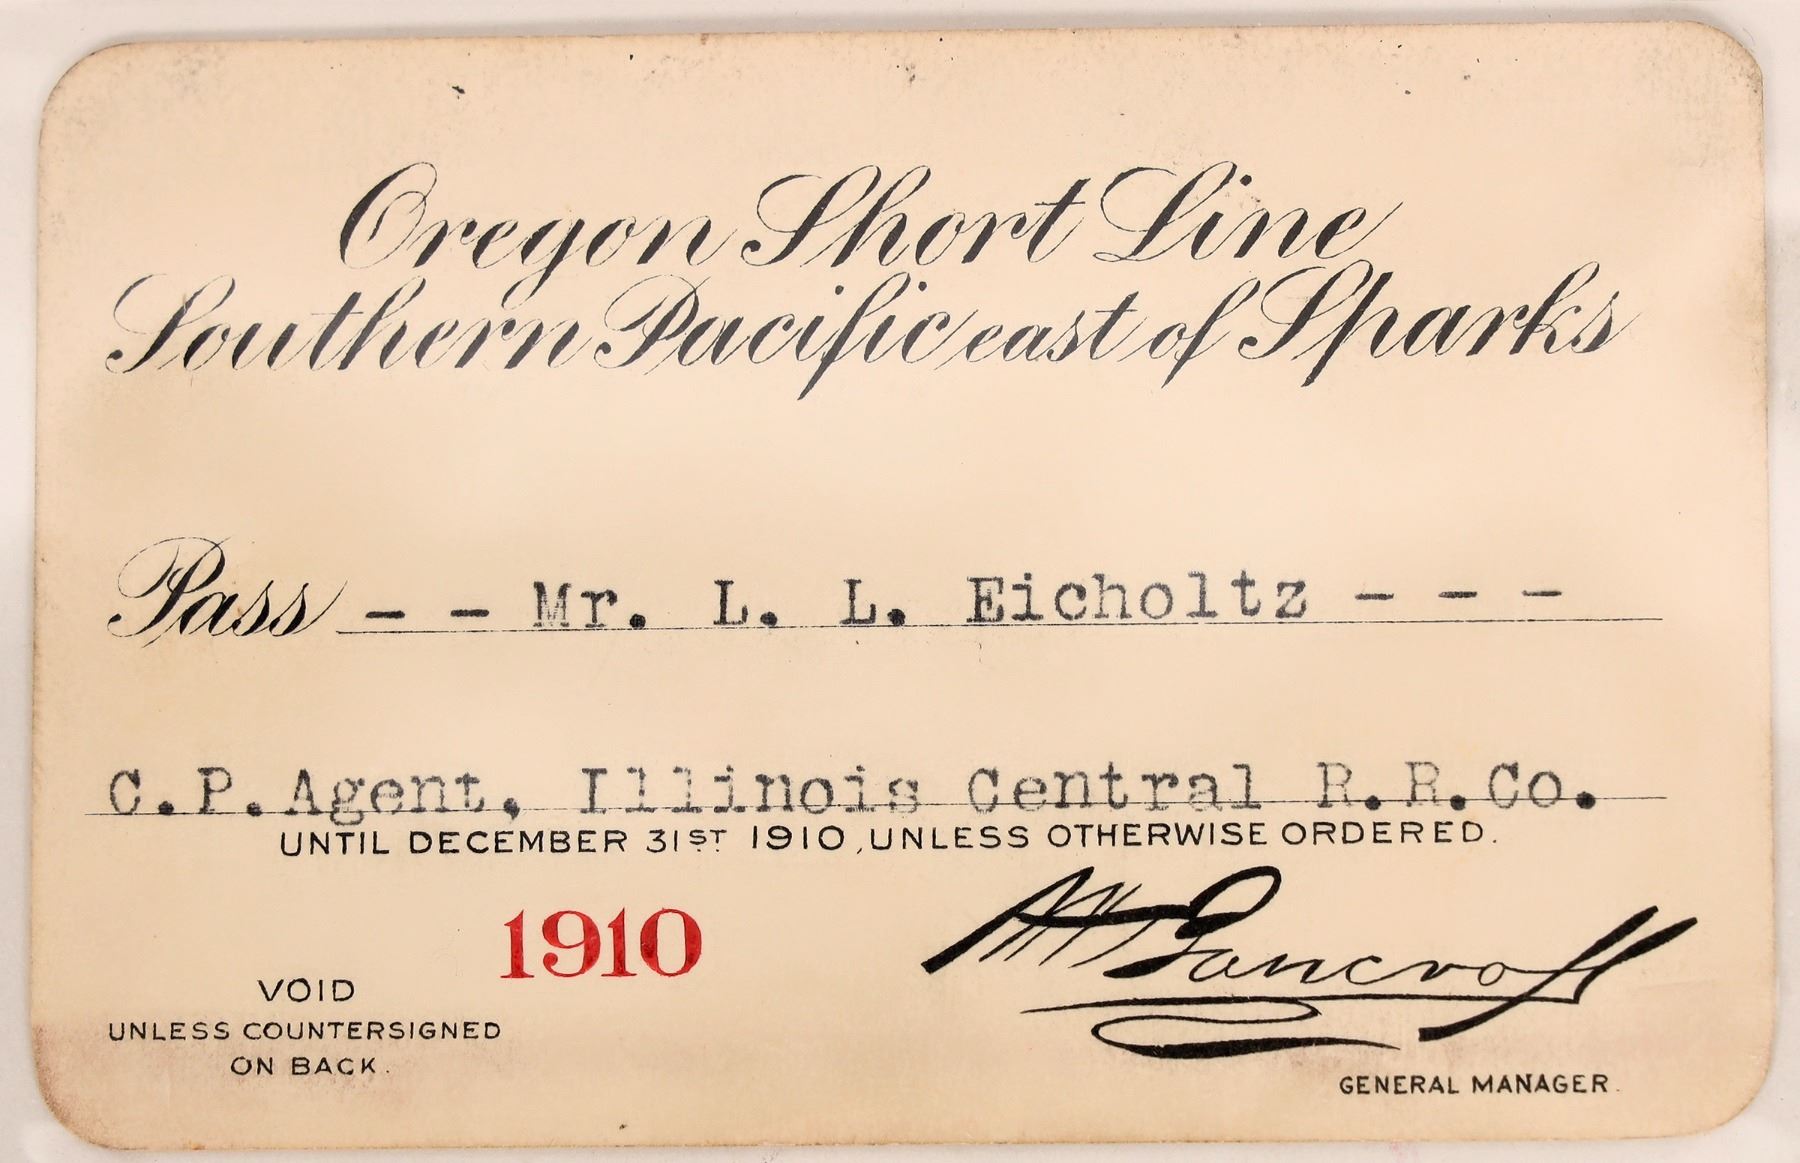 Oregon Short Line
Southern Pacific east of Sparks
Pass -- Mr. L. L. Eicholtz ---
C.P.Agent, Illinois Central R.R.Co.
UNTIL DECEMBER 31ST 1910, UNLESS OTHERWISE ORDERED.
1910
VOID
UNLESS COUNTERSIGNED
ON BACK.
Bancroft
GENERAL MANAGER.